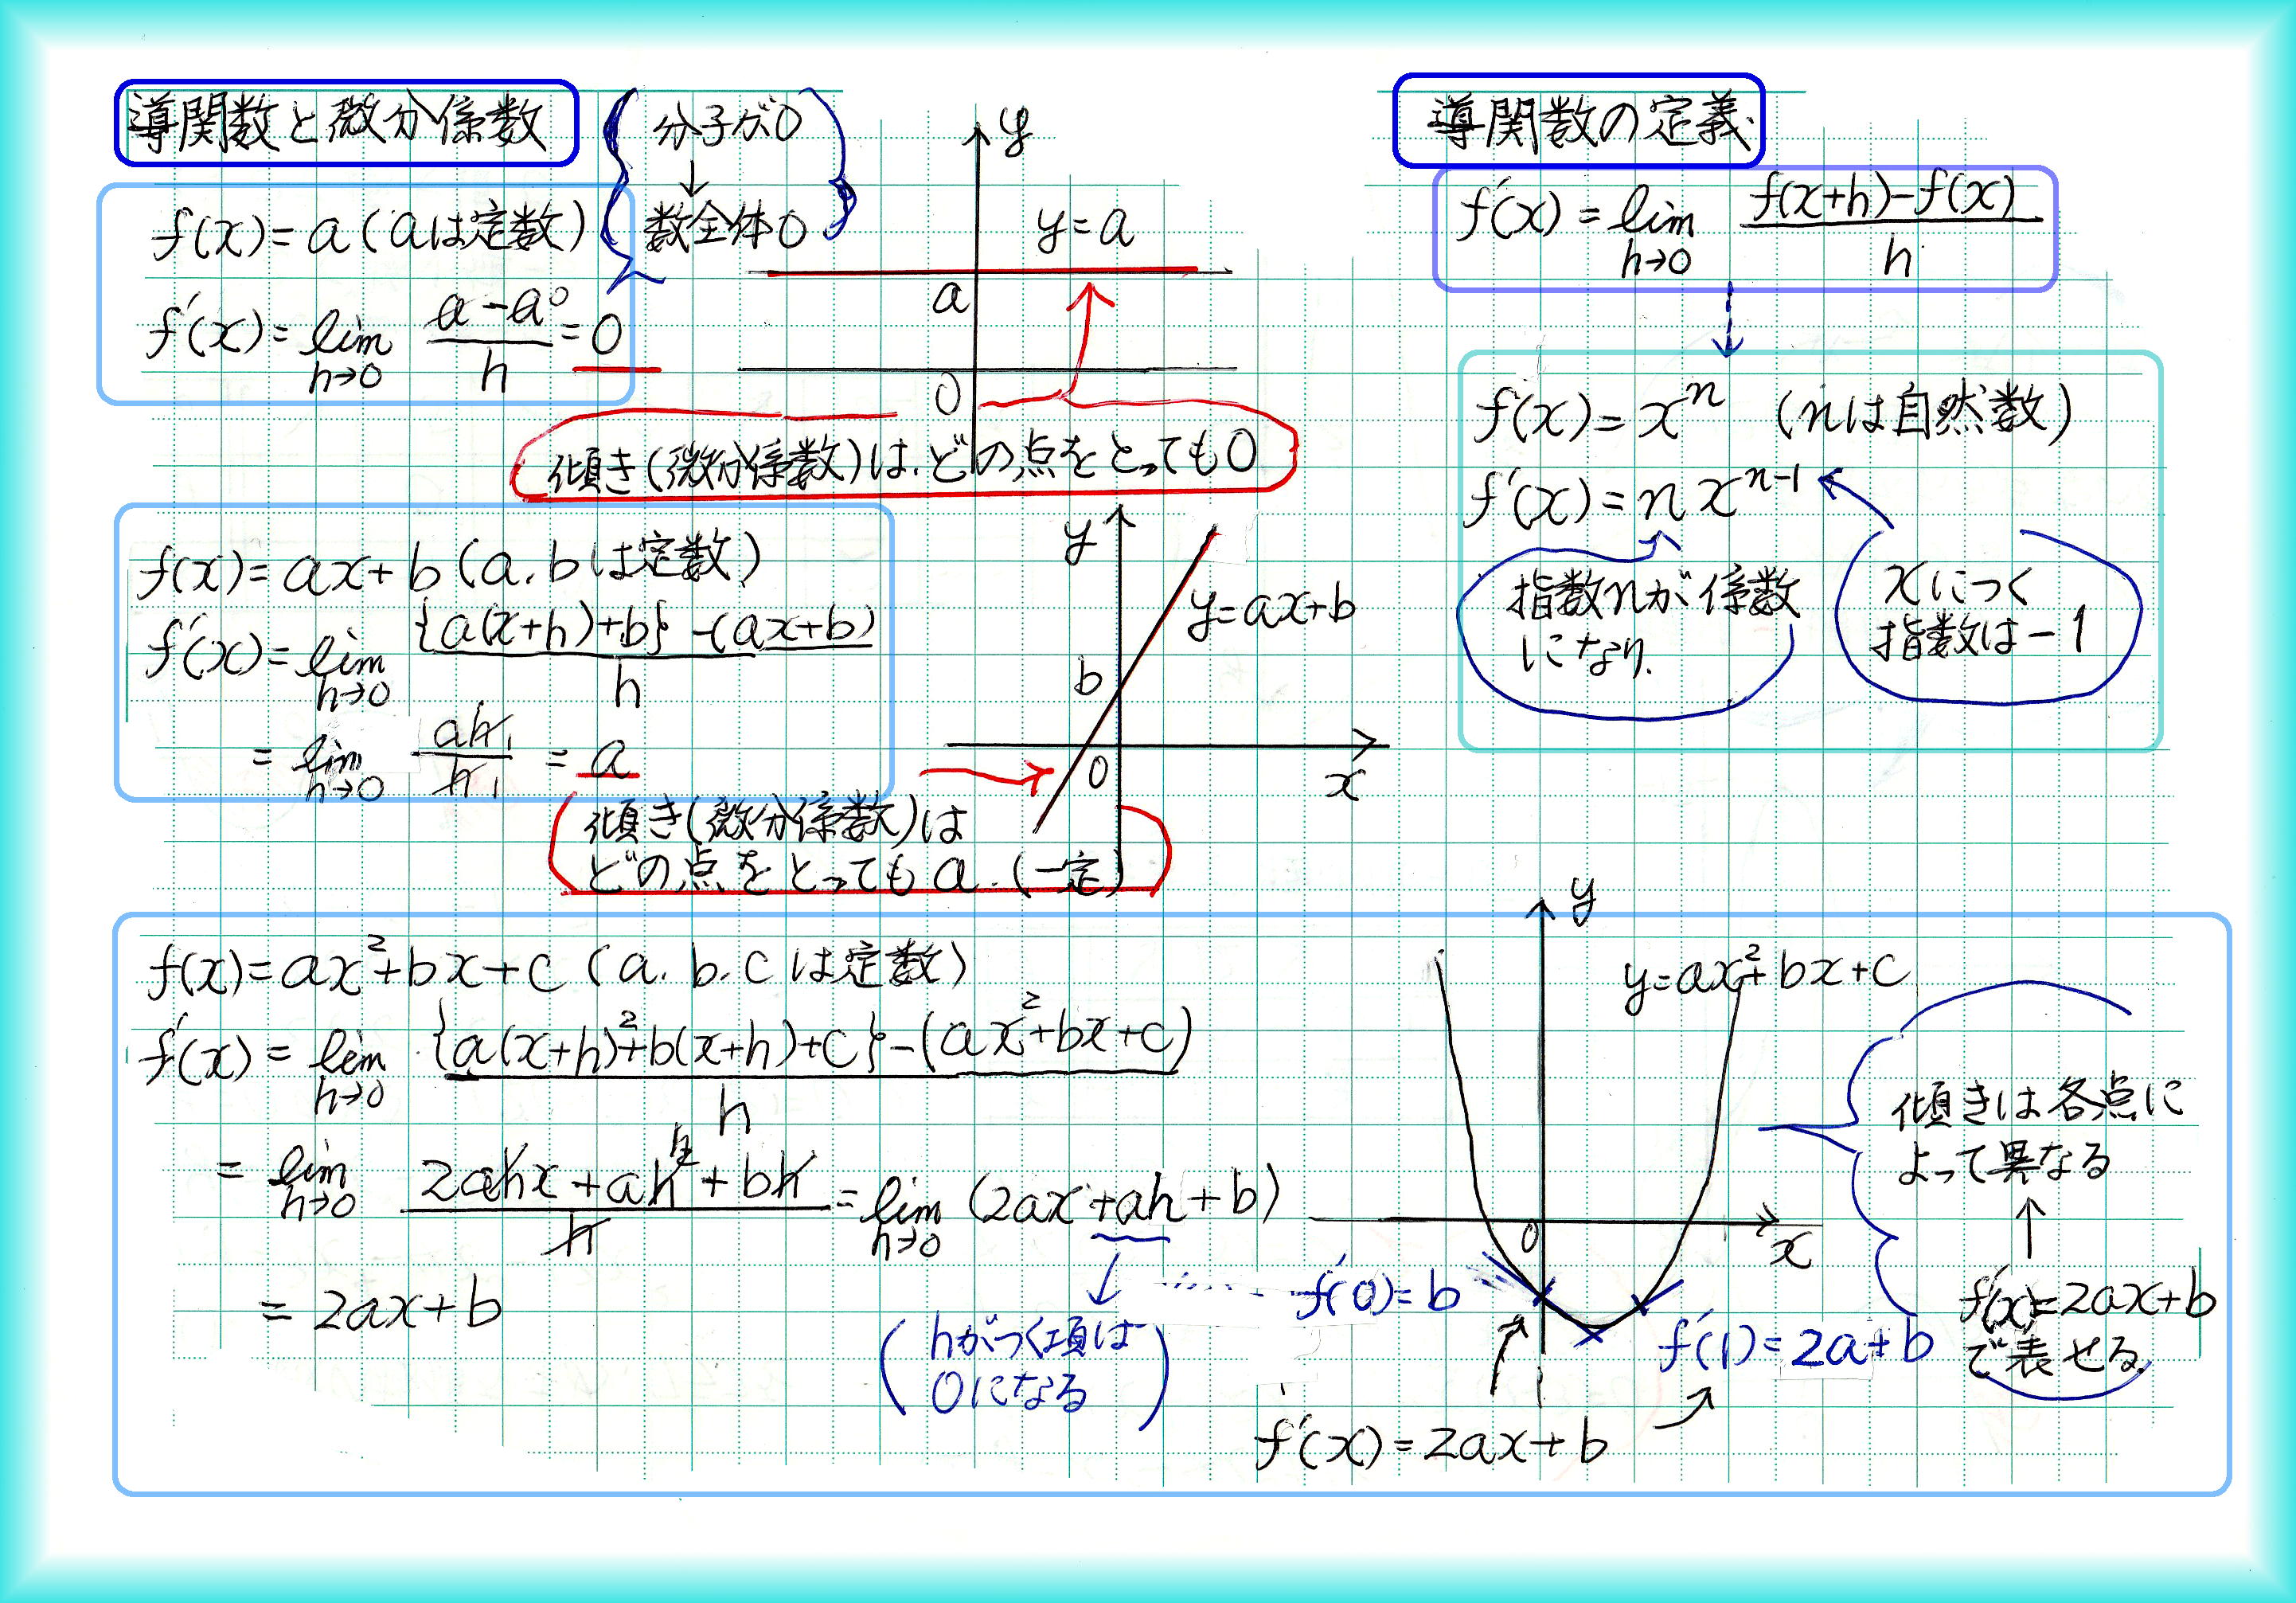 導関数と微分係数
分子が0
↓
数全体0
f(x)=a (aは定数)
f'(x)=lim h→0 (a-a)/h 0 =0
y
y=a
a
0
傾き(微分係数)は、どの点をとっても0
f(x)=ax+b (a.bは定数)
f'(x)=lim h→0 [{a(x+h)+b}-(ax+b)]/h
=lim h→0 ah/h =a
1
1
y
y=ax+b
b
0
x
傾き(微分係数)は
どの点をとってもa.(一定)
導関数の定義
f'(x)=lim h→0 [f(x+h)-f(x)]/h
f(x)=xⁿ (nは自然数)
f'(x)=nxⁿ⁻¹
指数nが係数
になり.
xにつく
指数は-1
f(x)=ax²+bx+c (a.b.cは定数)
f'(x)=lim h→0 [{a(x+h)²+b(x+h)+c}-(ax²+bx+c)]/h
=lim h→0 (2ahx+ah²+bh)/h =lim h→0 (2ax+ah+b)
=2ax+b
(hがつく項は
0になる)
y
y=ax²+bx+c
0
x
f'(0)=b
f'(1)=2a+b
f'(x)=2ax+b
傾きは各点に
よって異なる
↑
f'(x)=2ax+b
で表せる.